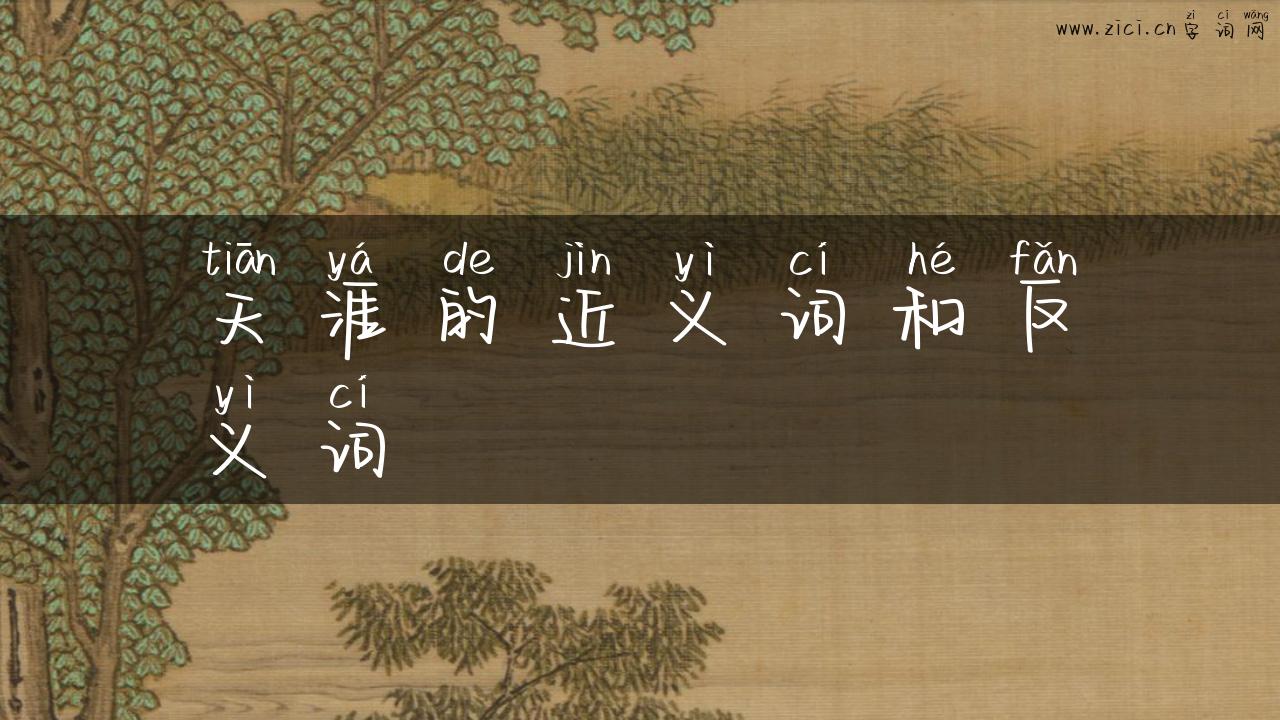 zì cí wǎng
www.zici.cn 字词网
tiān yá de jìn yì cí hé fǎn
天涯的近义词和反
yì cí
义词